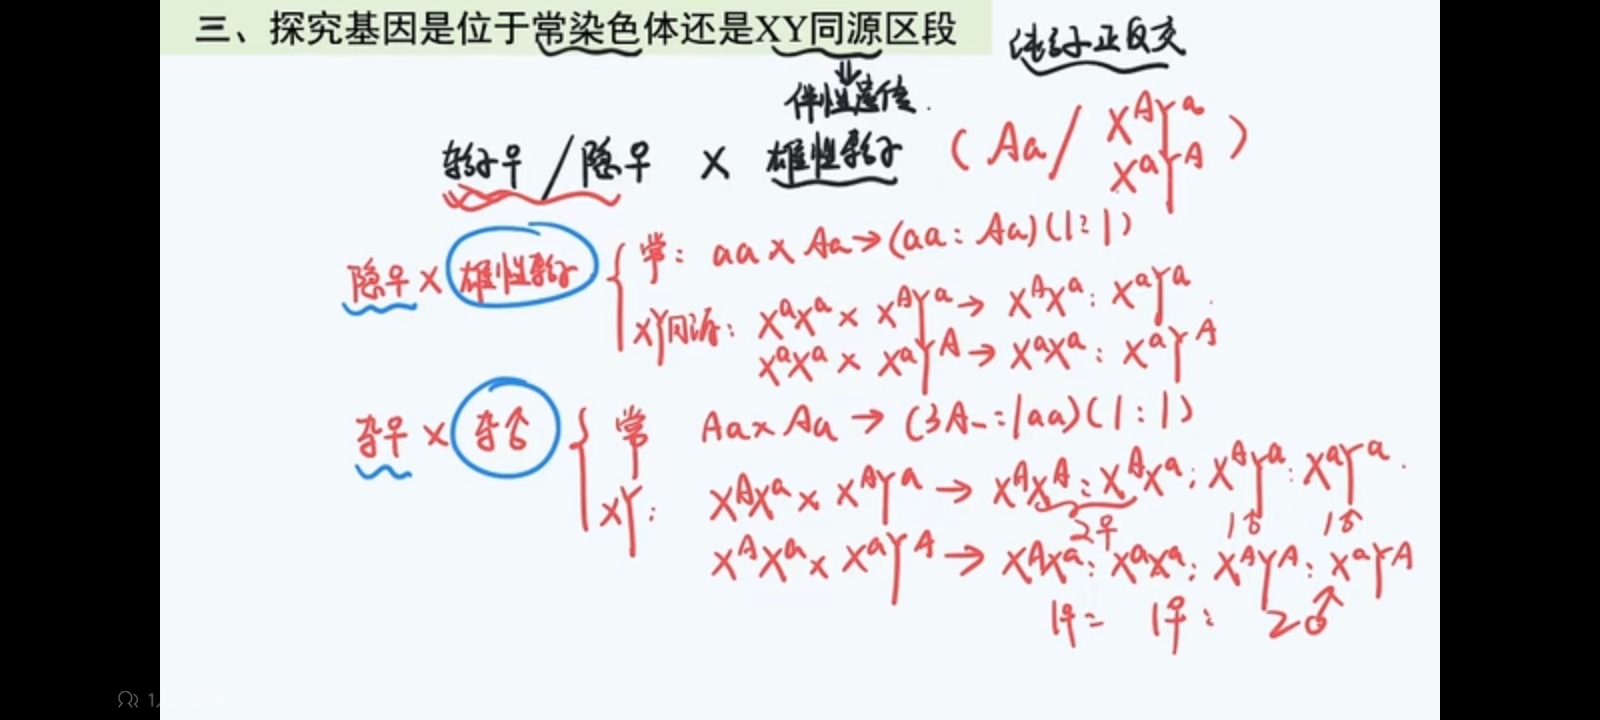 三、探究基因是位于常染色体还是XY同源区段
纯合子正反交
伴性遗传
杂合子♀/隐♀ × 雄性杂合子 (Aa/X^AY^a
X^aY^A)
隐♀ × 雄性杂合子
常: aa × Aa → (aa : Aa)(1:1)
XY同源: X^aX^a × X^AY^a → X^AX^a : X^aY^a
X^aX^a × X^aY^A → X^aX^a : X^aY^A
杂♀ × 杂合
常 Aa × Aa → (3A_ : 1aa)(1:1)
XY: X^AX^a × X^AY^a → X^AX^A : X^AX^a : X^AY^a : X^aY^a
2♀ 1♂ 1♂
X^AX^a × X^aY^A → X^AX^a : X^aX^a : X^AY^A : X^aY^A
1♀ : 1♀ : 2♂